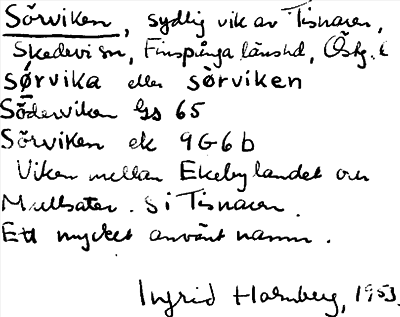 Sörviken, sydlig vik av Tisnaren,
Skedevi sn, Finspånga länshd, Östg. l
sørvika eller sørviken
Söderviken Gs 65
Sörviken ek 9G6b
Viken mellan Ekebylandet och
Mullsäter. S i Tisnaren.
Ett mycket använt namn.
Ingrid Holmberg, 1953.